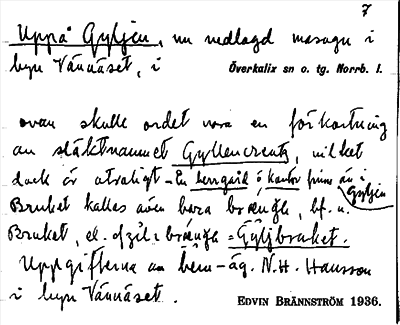 7
Uppå Gyljen, nu nedlagd masugn i
byn Vännäset, i Överkalix sn o. tg. Norrb. l.
ovan skulle ordet vara en förkortning
av släktnamnet Gyllencreutz, vilket
dock är otroligt – En herrgård o. kontor finns än i Gyljen
Bruket kallas även bara brænɟħ, bf. v.
Bruket, el. = Gyljbruket.
Uppgifterna av hem-äg. N.H. Hansson
i byn Vännäset.
EDVIN BRÄNNSTRÖM 1936.